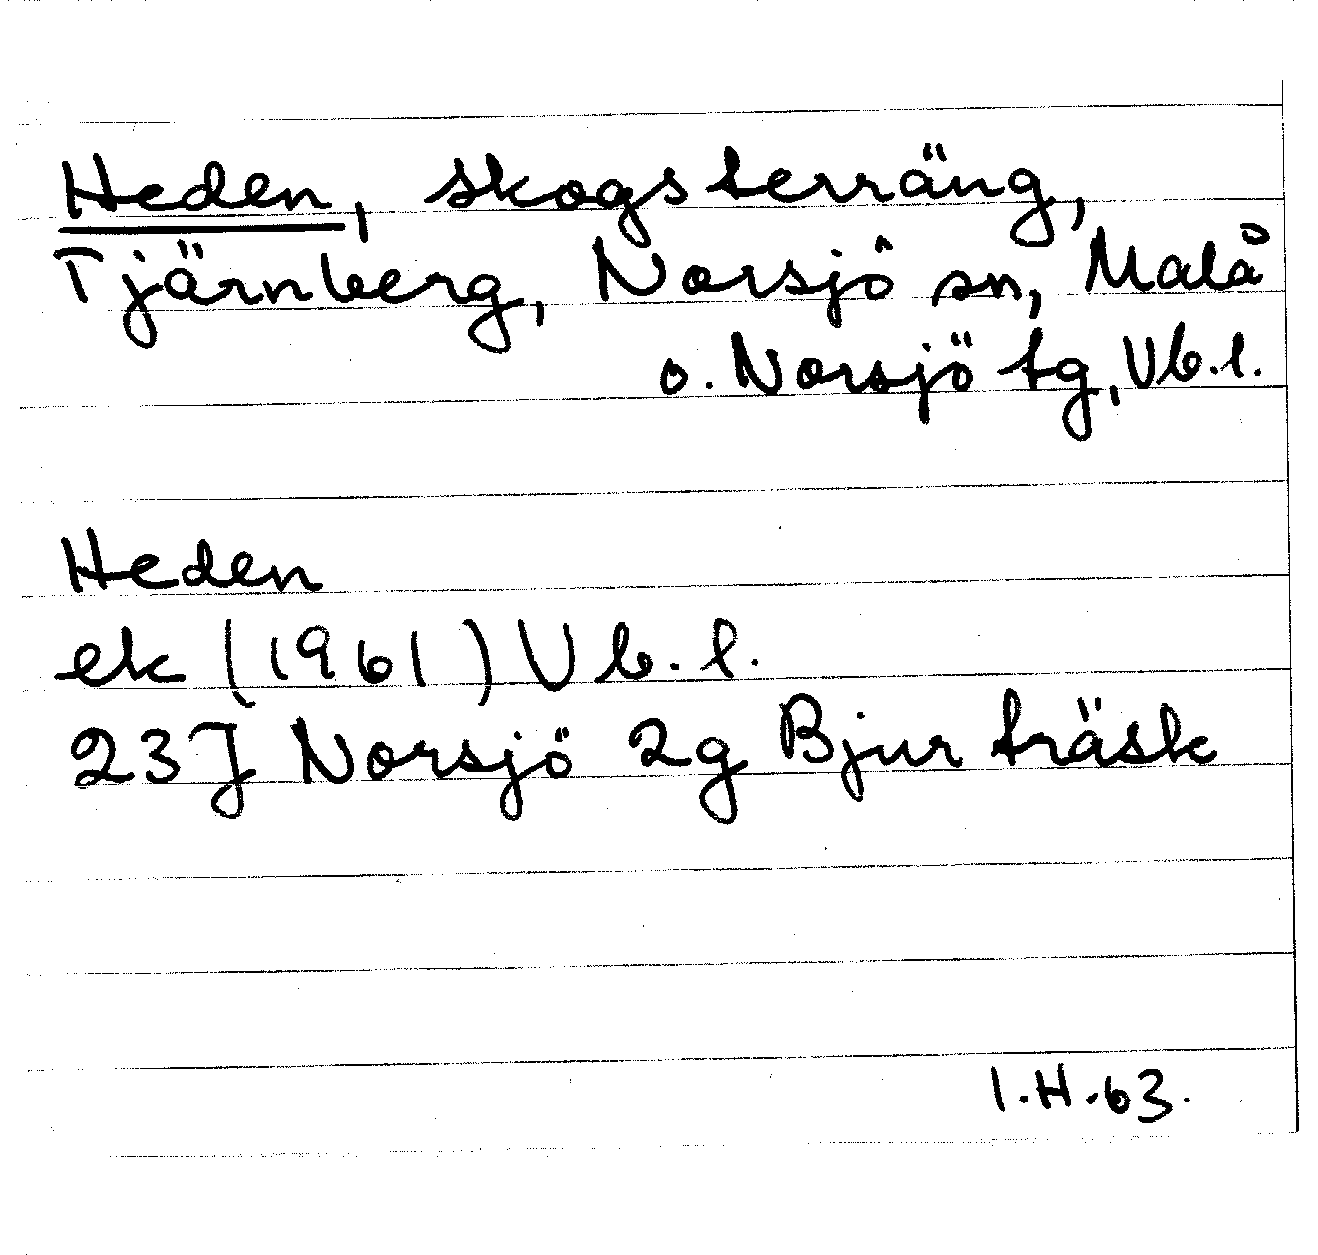 Heden, skogsterräng,
Tjärnberg, Norsjö sn, Malå
o. Norsjö tg, Vb.l.
Heden
ek (1961) Vb.l.
23J Norsjö 2g Bjurträsk
I.H.63.